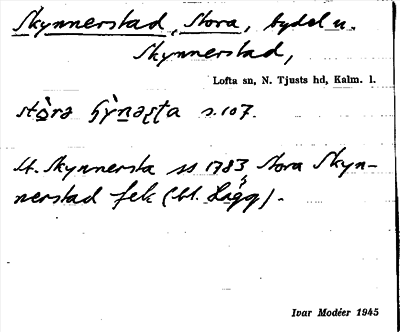 Skynnerstad, Stora, bydel u.
Skynnerstad,
Lofta sn, N. Tjusts hd, Kalm. l.
stòrə s.107.
St. Skynnersta ss 1783, Stora Skyn-
nerstad fek (bl. Hägg).
Ivar Modéer 1945